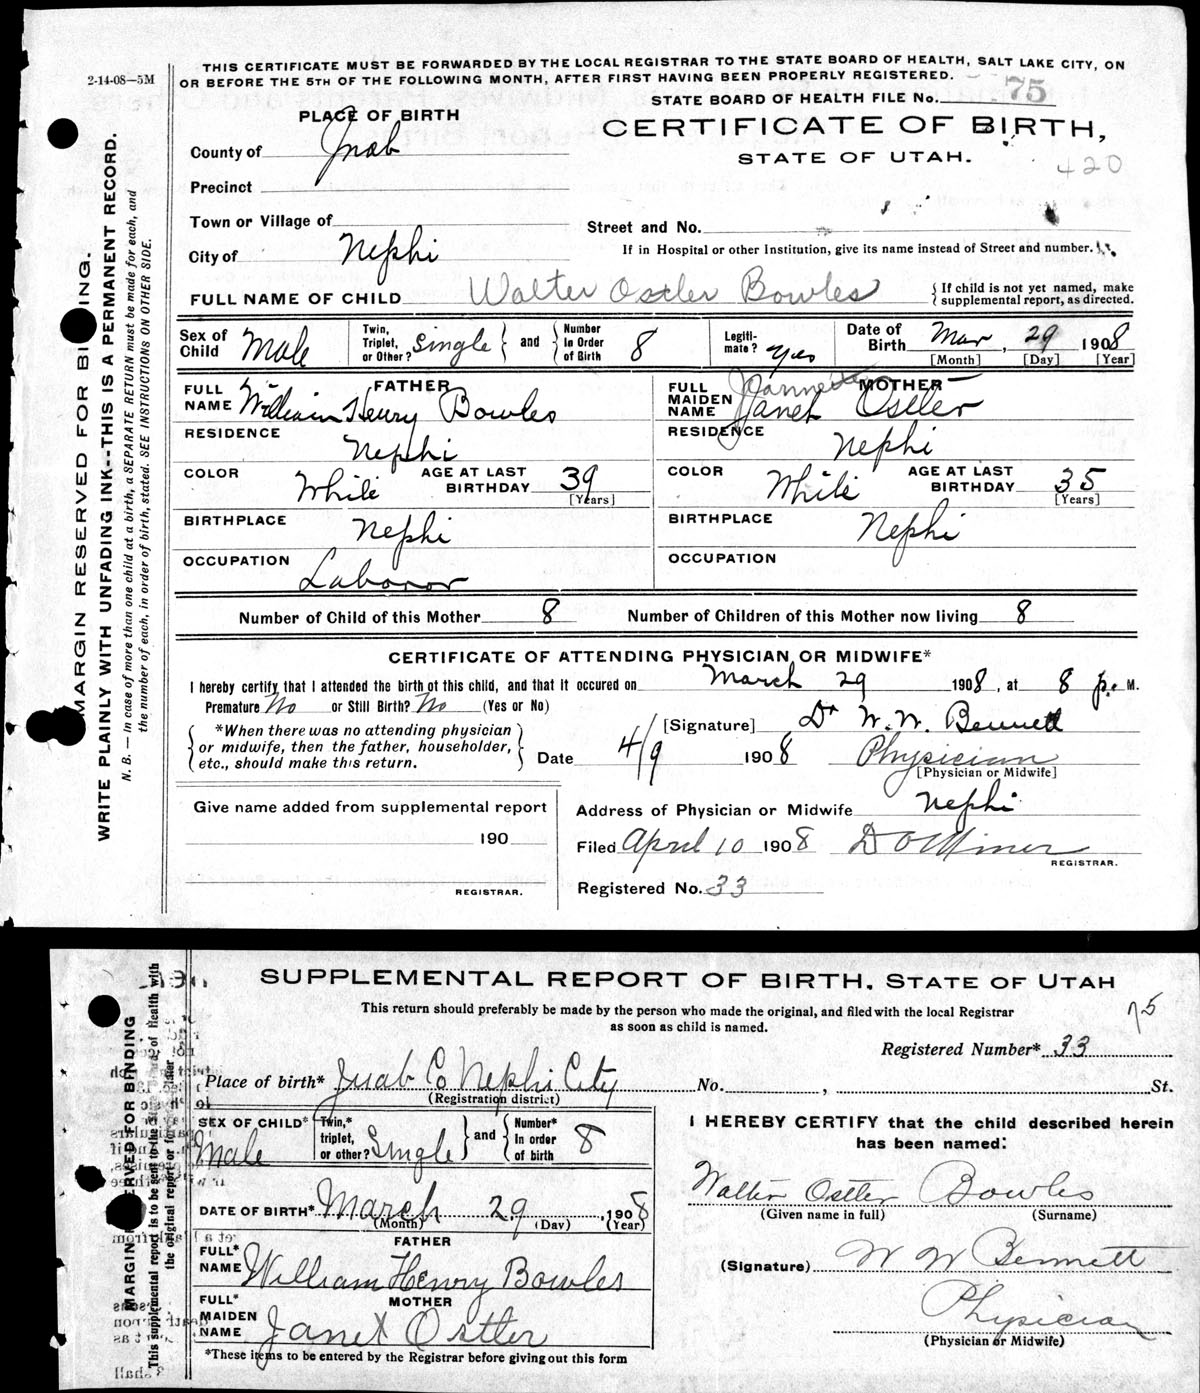 2-14-08—5M
THIS CERTIFICATE MUST BE FORWARDED BY THE LOCAL REGISTRAR TO THE STATE BOARD OF HEALTH, SALT LAKE CITY, ON
OR BEFORE THE 5TH OF THE FOLLOWING MONTH, AFTER FIRST HAVING BEEN PROPERLY REGISTERED.
STATE BOARD OF HEALTH FILE No. 75
PLACE OF BIRTH
CERTIFICATE OF BIRTH,
STATE OF UTAH.
420
County of Juab
Precinct
Town or Village of
Street and No.
City of Nephi
If in Hospital or other Institution, give its name instead of Street and number.
FULL NAME OF CHILD Walter Ostler Bowles
{If child is not yet named, make
{supplemental report, as directed.
Sex of Child Male
Twin, Triplet, or Other? Single } and { Number In Order of Birth 8
Legiti-mate? Yes
Date of Birth Mar, 29 1908
[Month] [Day] [Year]
FATHER
FULL NAME William Henry Bowles
MOTHER
FULL MAIDEN NAME Jannette Janet Ostler
RESIDENCE Nephi
RESIDENCE Nephi
COLOR White AGE AT LAST BIRTHDAY 39 [Years]
COLOR White AGE AT LAST BIRTHDAY 35 [Years]
BIRTHPLACE Nephi
BIRTHPLACE Nephi
OCCUPATION Laboror
OCCUPATION
Number of Child of this Mother 8 Number of Children of this Mother now living 8
CERTIFICATE OF ATTENDING PHYSICIAN OR MIDWIFE*
I hereby certify that I attended the birth of this child, and that it occured on March 29 1908, at 8 p. M.
Premature No or Still Birth? No (Yes or No)
*When there was no attending physician
or midwife, then the father, householder,
etc., should make this return.
[Signature] Dr W. W. Bennett
Date 4/9 1908 Physician
[Physician or Midwife]
Give name added from supplemental report
190
REGISTRAR.
Address of Physician or Midwife Nephi
Filed April 10 1908 D O Miner
REGISTRAR.
Registered No. 33
MARGIN RESERVED FOR BINDING.
WRITE PLAINLY WITH UNFADING INK--THIS IS A PERMANENT RECORD.
N. B. — In case of more than one child at a birth, a SEPARATE RETURN must be made for each, and
the number of each, in order of birth, stated. SEE INSTRUCTIONS ON OTHER SIDE.
SUPPLEMENTAL REPORT OF BIRTH, STATE OF UTAH
This return should preferably be made by the person who made the original, and filed with the local Registrar
as soon as child is named.
75
Registered Number* 33
Place of birth* Juab Co Nephi City No. , St.
(Registration district)
SEX OF CHILD* Male
Twin,* triplet, or other? Single } and { Number* In order of birth 8
I HEREBY CERTIFY that the child described herein
has been named:
DATE OF BIRTH* March 29, 1908
(Month) (Day) (Year)
Walter Ostler Bowles
(Given name in full) (Surname)
FATHER
FULL* NAME William Henry Bowles
(Signature) W W Bennett
MOTHER
FULL* MAIDEN NAME Janet Ostler
Physician
(Physician or Midwife)
*These items to be entered by the Registrar before giving out this form
MARGIN RESERVED FOR BINDING
This supplemental report is to be sent to the
the original report or